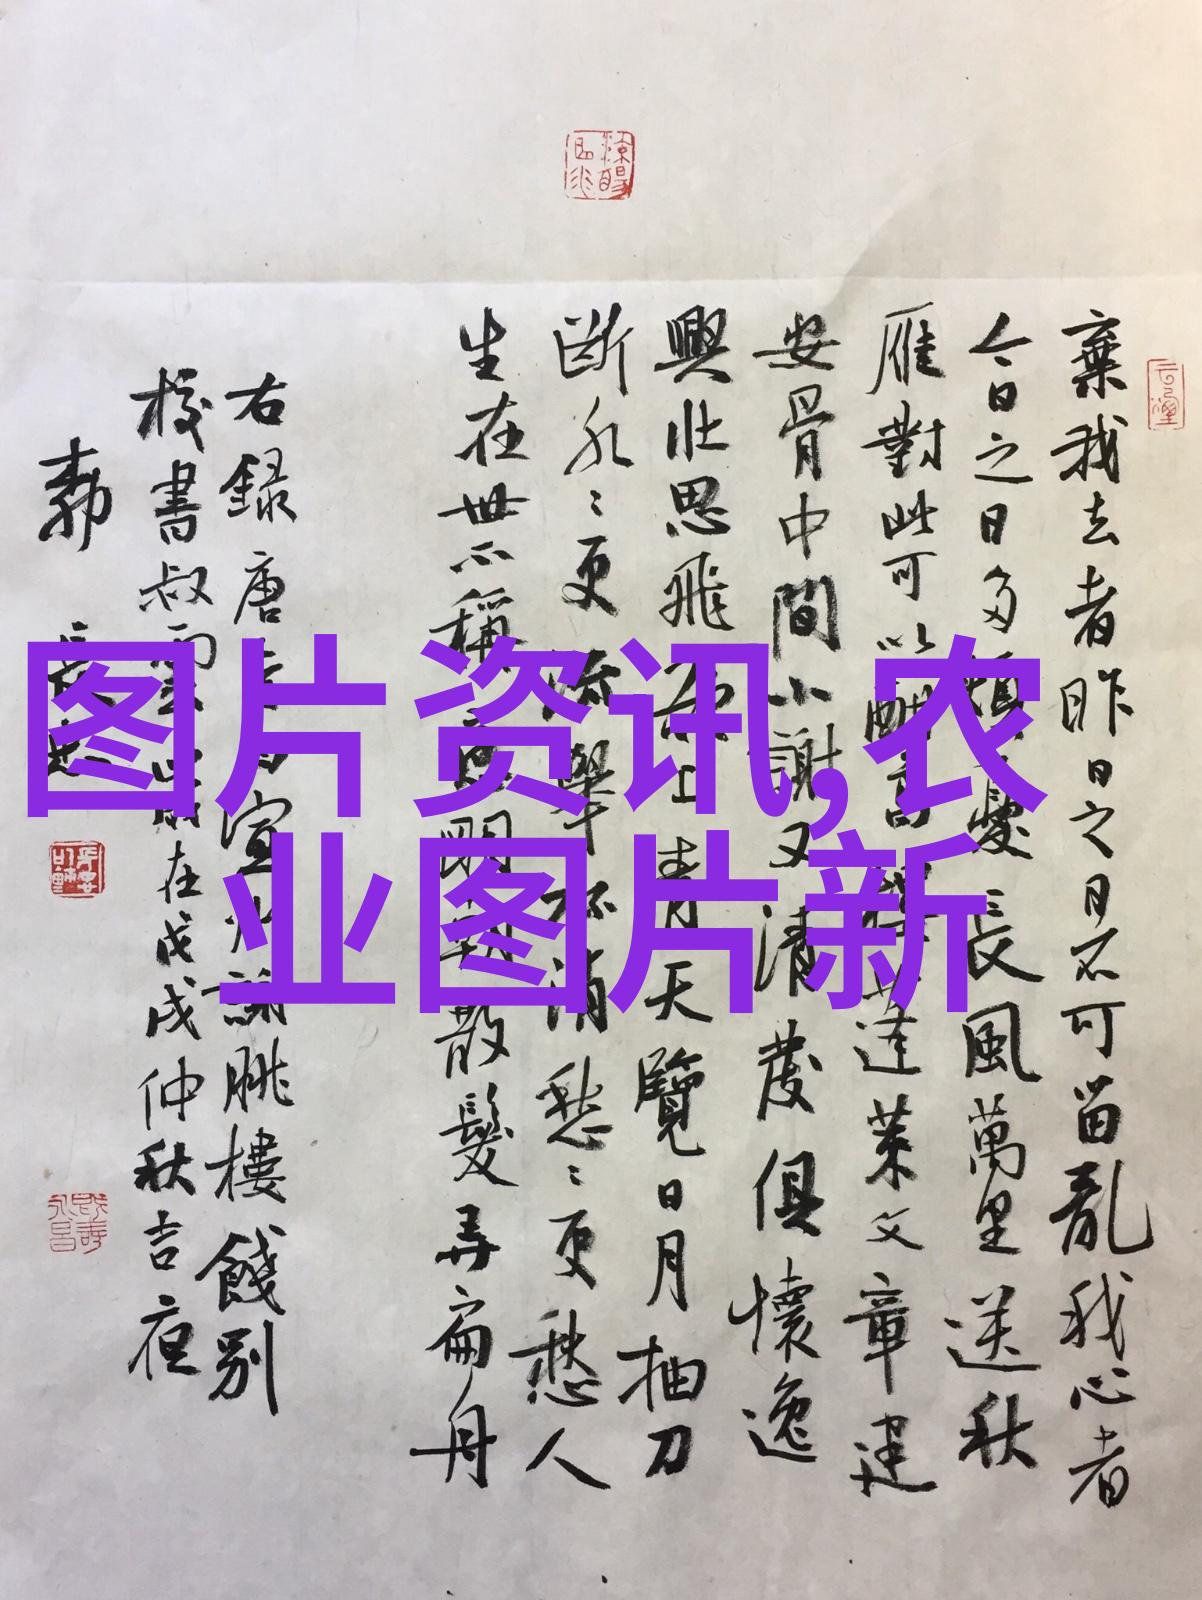 图片资讯,农
业图片新
棄我去者昨日之日不可留亂我心者
今日之日多煩憂長風萬里送秋
雁對此可以酣高樓蓬萊文章建
安骨中間小謝又清發俱懷逸
興壯思飛欲上青天覽日月抽刀
斷水〻更流舉杯消愁〻更愁人
生在世不稱意明朝散髮弄扁舟
右録唐李白宣州謝朓樓餞別
校書叔雲歲在戊戌仲秋吉夜